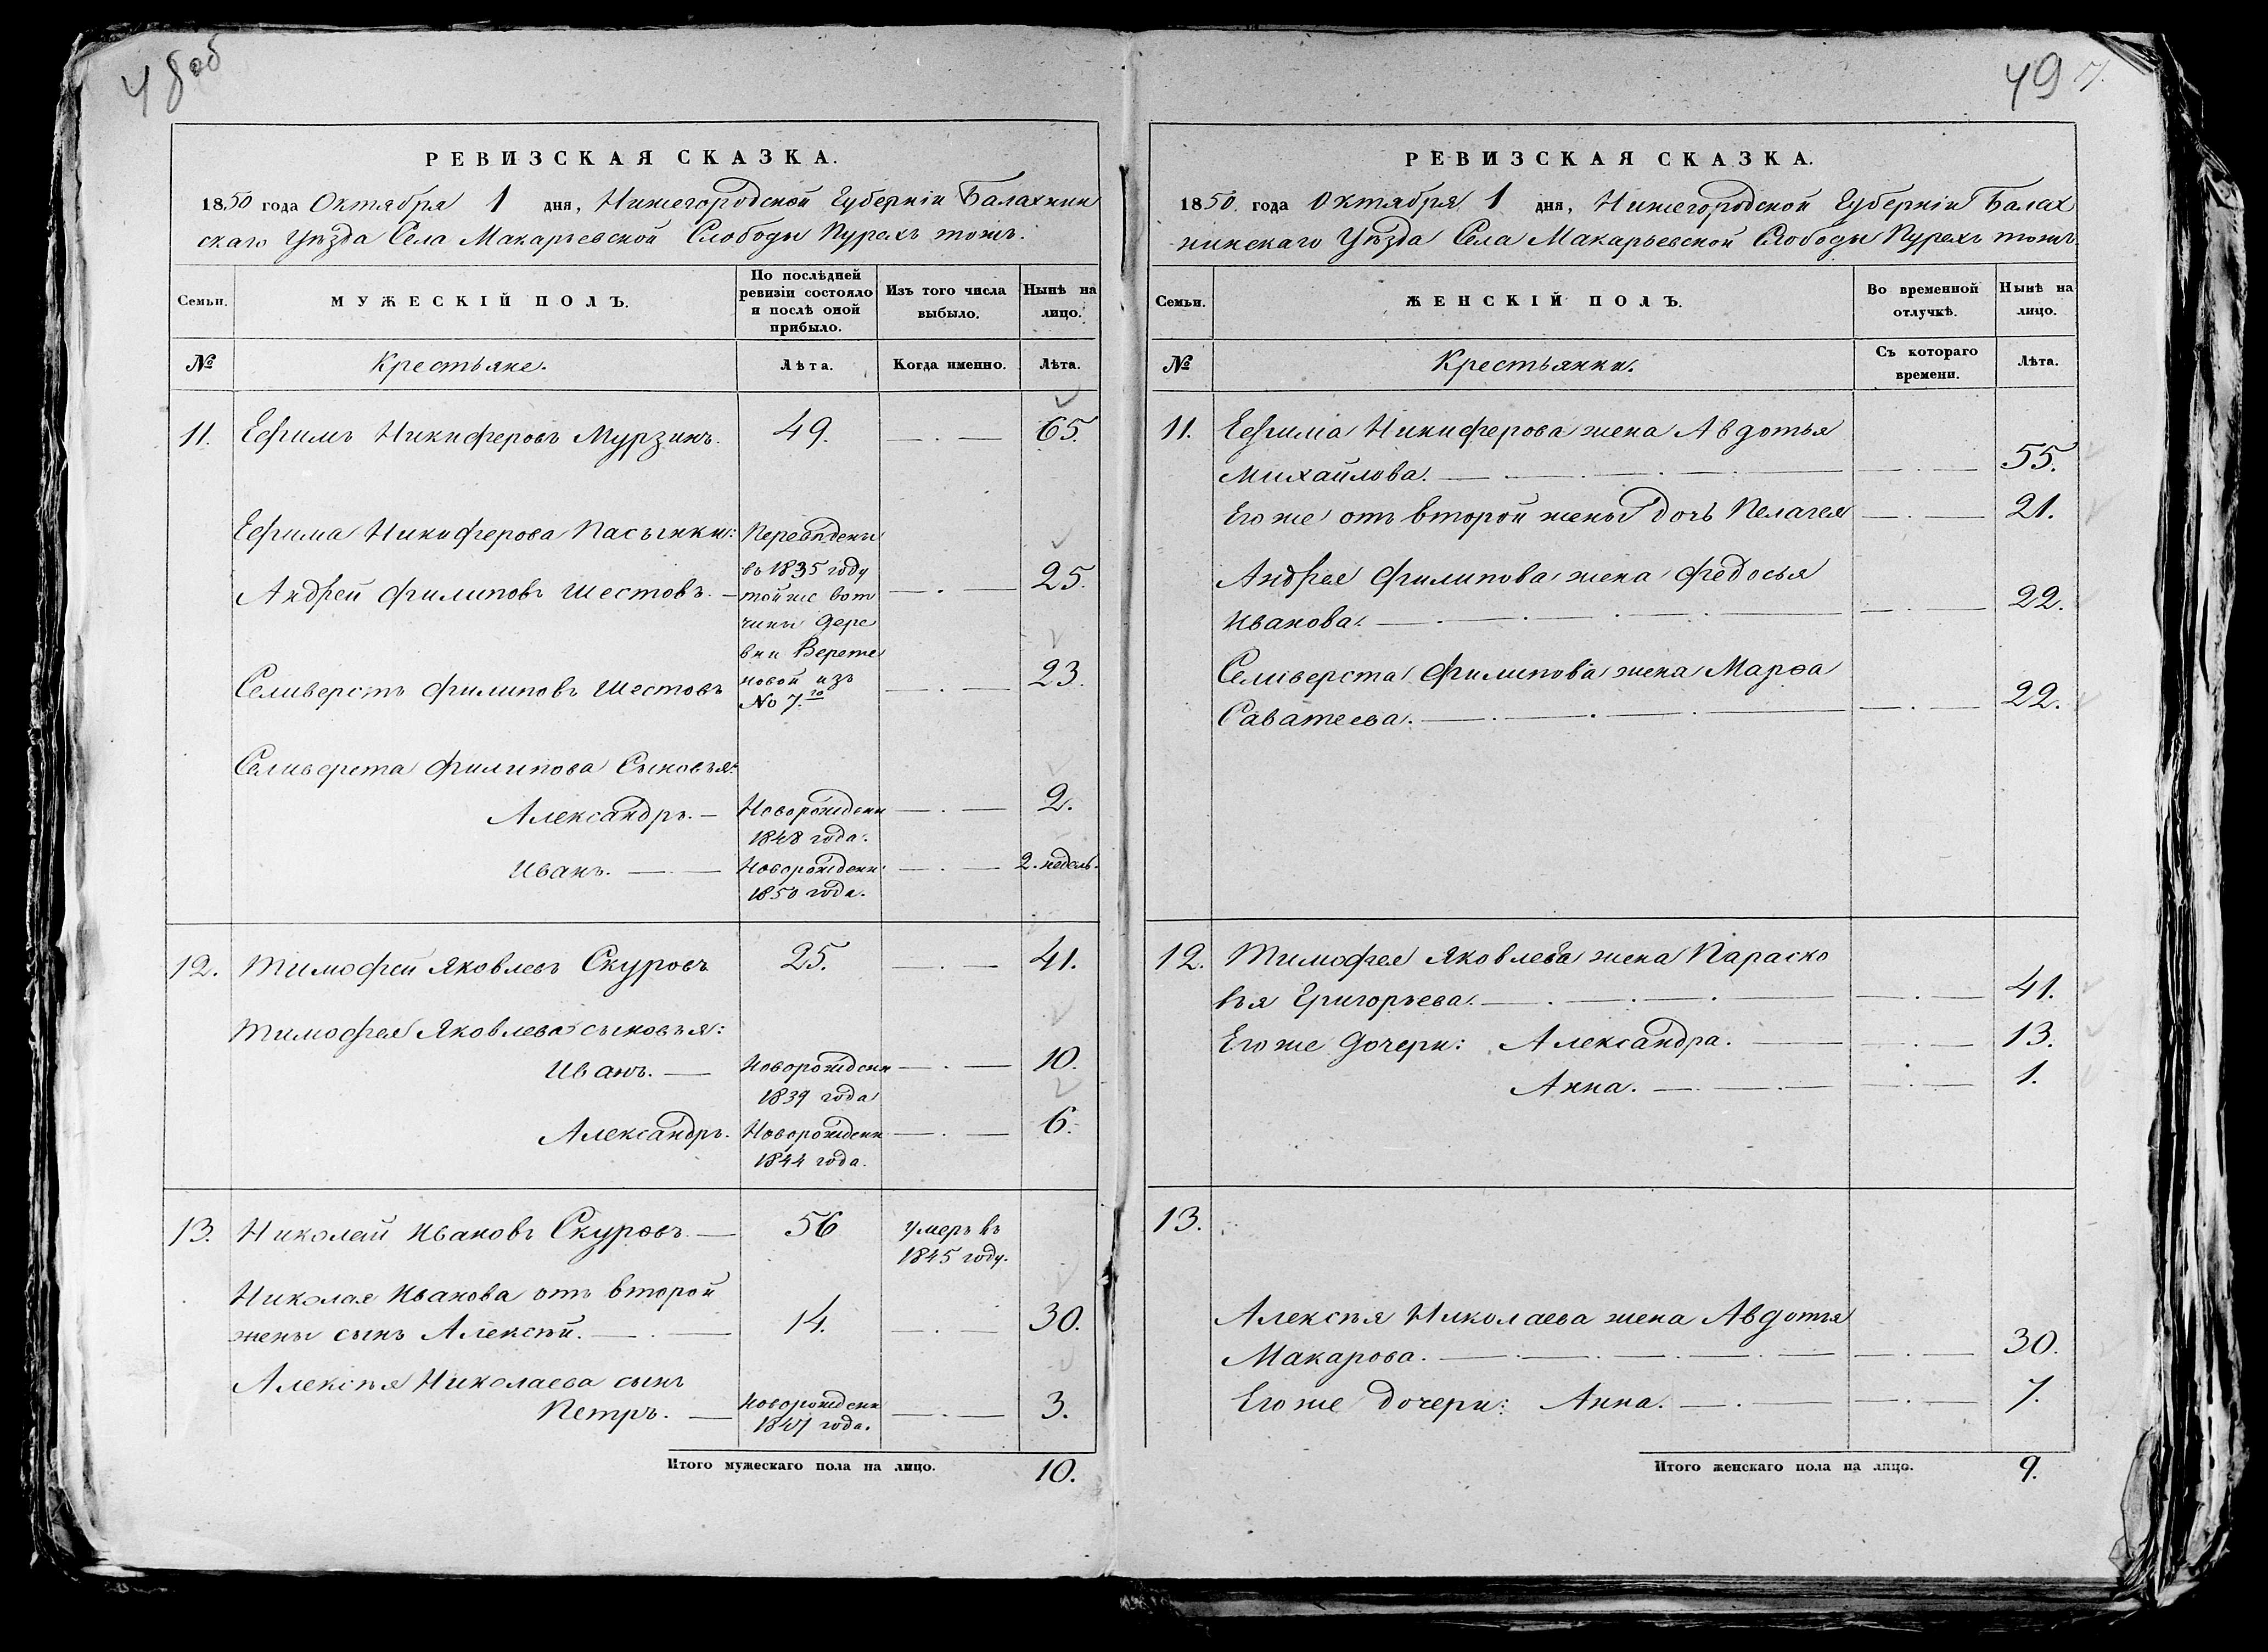 48об
РЕВИЗСКАЯ СКАЗКА.
1850 года Октября 1 дня, Нижегородской Губерніи Балахнин
скаго Уѣзда Села Макарьевской Слободы Пурехъ тожъ.
Семьи. МУЖЕСКІЙ ПОЛЪ. По послѣдней ревизіи состояло и послѣ оной прибыло. Изъ того числа выбыло. Нынѣ на лицо.
№ Крестьяне. Лѣта. Когда именно. Лѣта.
11. Ефимъ Никиферовъ Мурзинъ. 49. 65.
Ефима Никиферова Пасынки: Переведены
въ 1835 году
Андрей Филиповъ Шестовъ. тойже вот 25.
чины дере
вни Верете
Селиверстъ Филиповъ Шестовъ новой изъ 23.
№ 7.го
Селиверста Филипова Сыновья:
Александръ. Новорожденн 2.
1848 года.
Иванъ. Новорожденн: 2. недель.
1850 года.
12. Тимофей Яковлевъ Скуровъ 25. 41.
Тимофея Яковлева сыновья:
Иванъ. Новорожденн 10.
1839 года
Александръ. Новорожденн 6.
1844 года.
13. Николай Ивановъ Скуровъ 56 Умеръ въ
1845 году.
Николая Иванова отъ второй
жены сынъ Алексѣй. 14. 30.
Алексѣя Николаева сынъ
Петръ. Новорожденн 3.
1847 года.
Итого мужескаго пола на лицо. 10.
49
РЕВИЗСКАЯ СКАЗКА.
1850. года Октября 1 дня, Нижегородской Губерніи Балах
нинскаго Уѣзда Села Макарьевской Слободы Пурехъ тожъ
Семьи. ЖЕНСКІЙ ПОЛЪ. Во временной отлучкѣ. Нынѣ на лицо.
№ Крестьянки. Съ котораго времени. Лѣта.
11. Ефима Никиферова жена Авдотья
Михайлова. 55.
Его же отъ второй жены дочь Пелагея 21.
Андрея Филипова жена Федосья
Иванова. 22.
Селиверста Филипова жена Марѳа
Саватеева. 22.
12. Тимофея Яковлева жена Параско
вья Григорьева. 41.
Его же дочери: Александра. 13.
Анна. 1.
13.
Алексѣя Николаева жена Авдотья
Макарова. 30.
Его же дочери: Анна. 7.
Итого женскаго пола на лицо. 9.